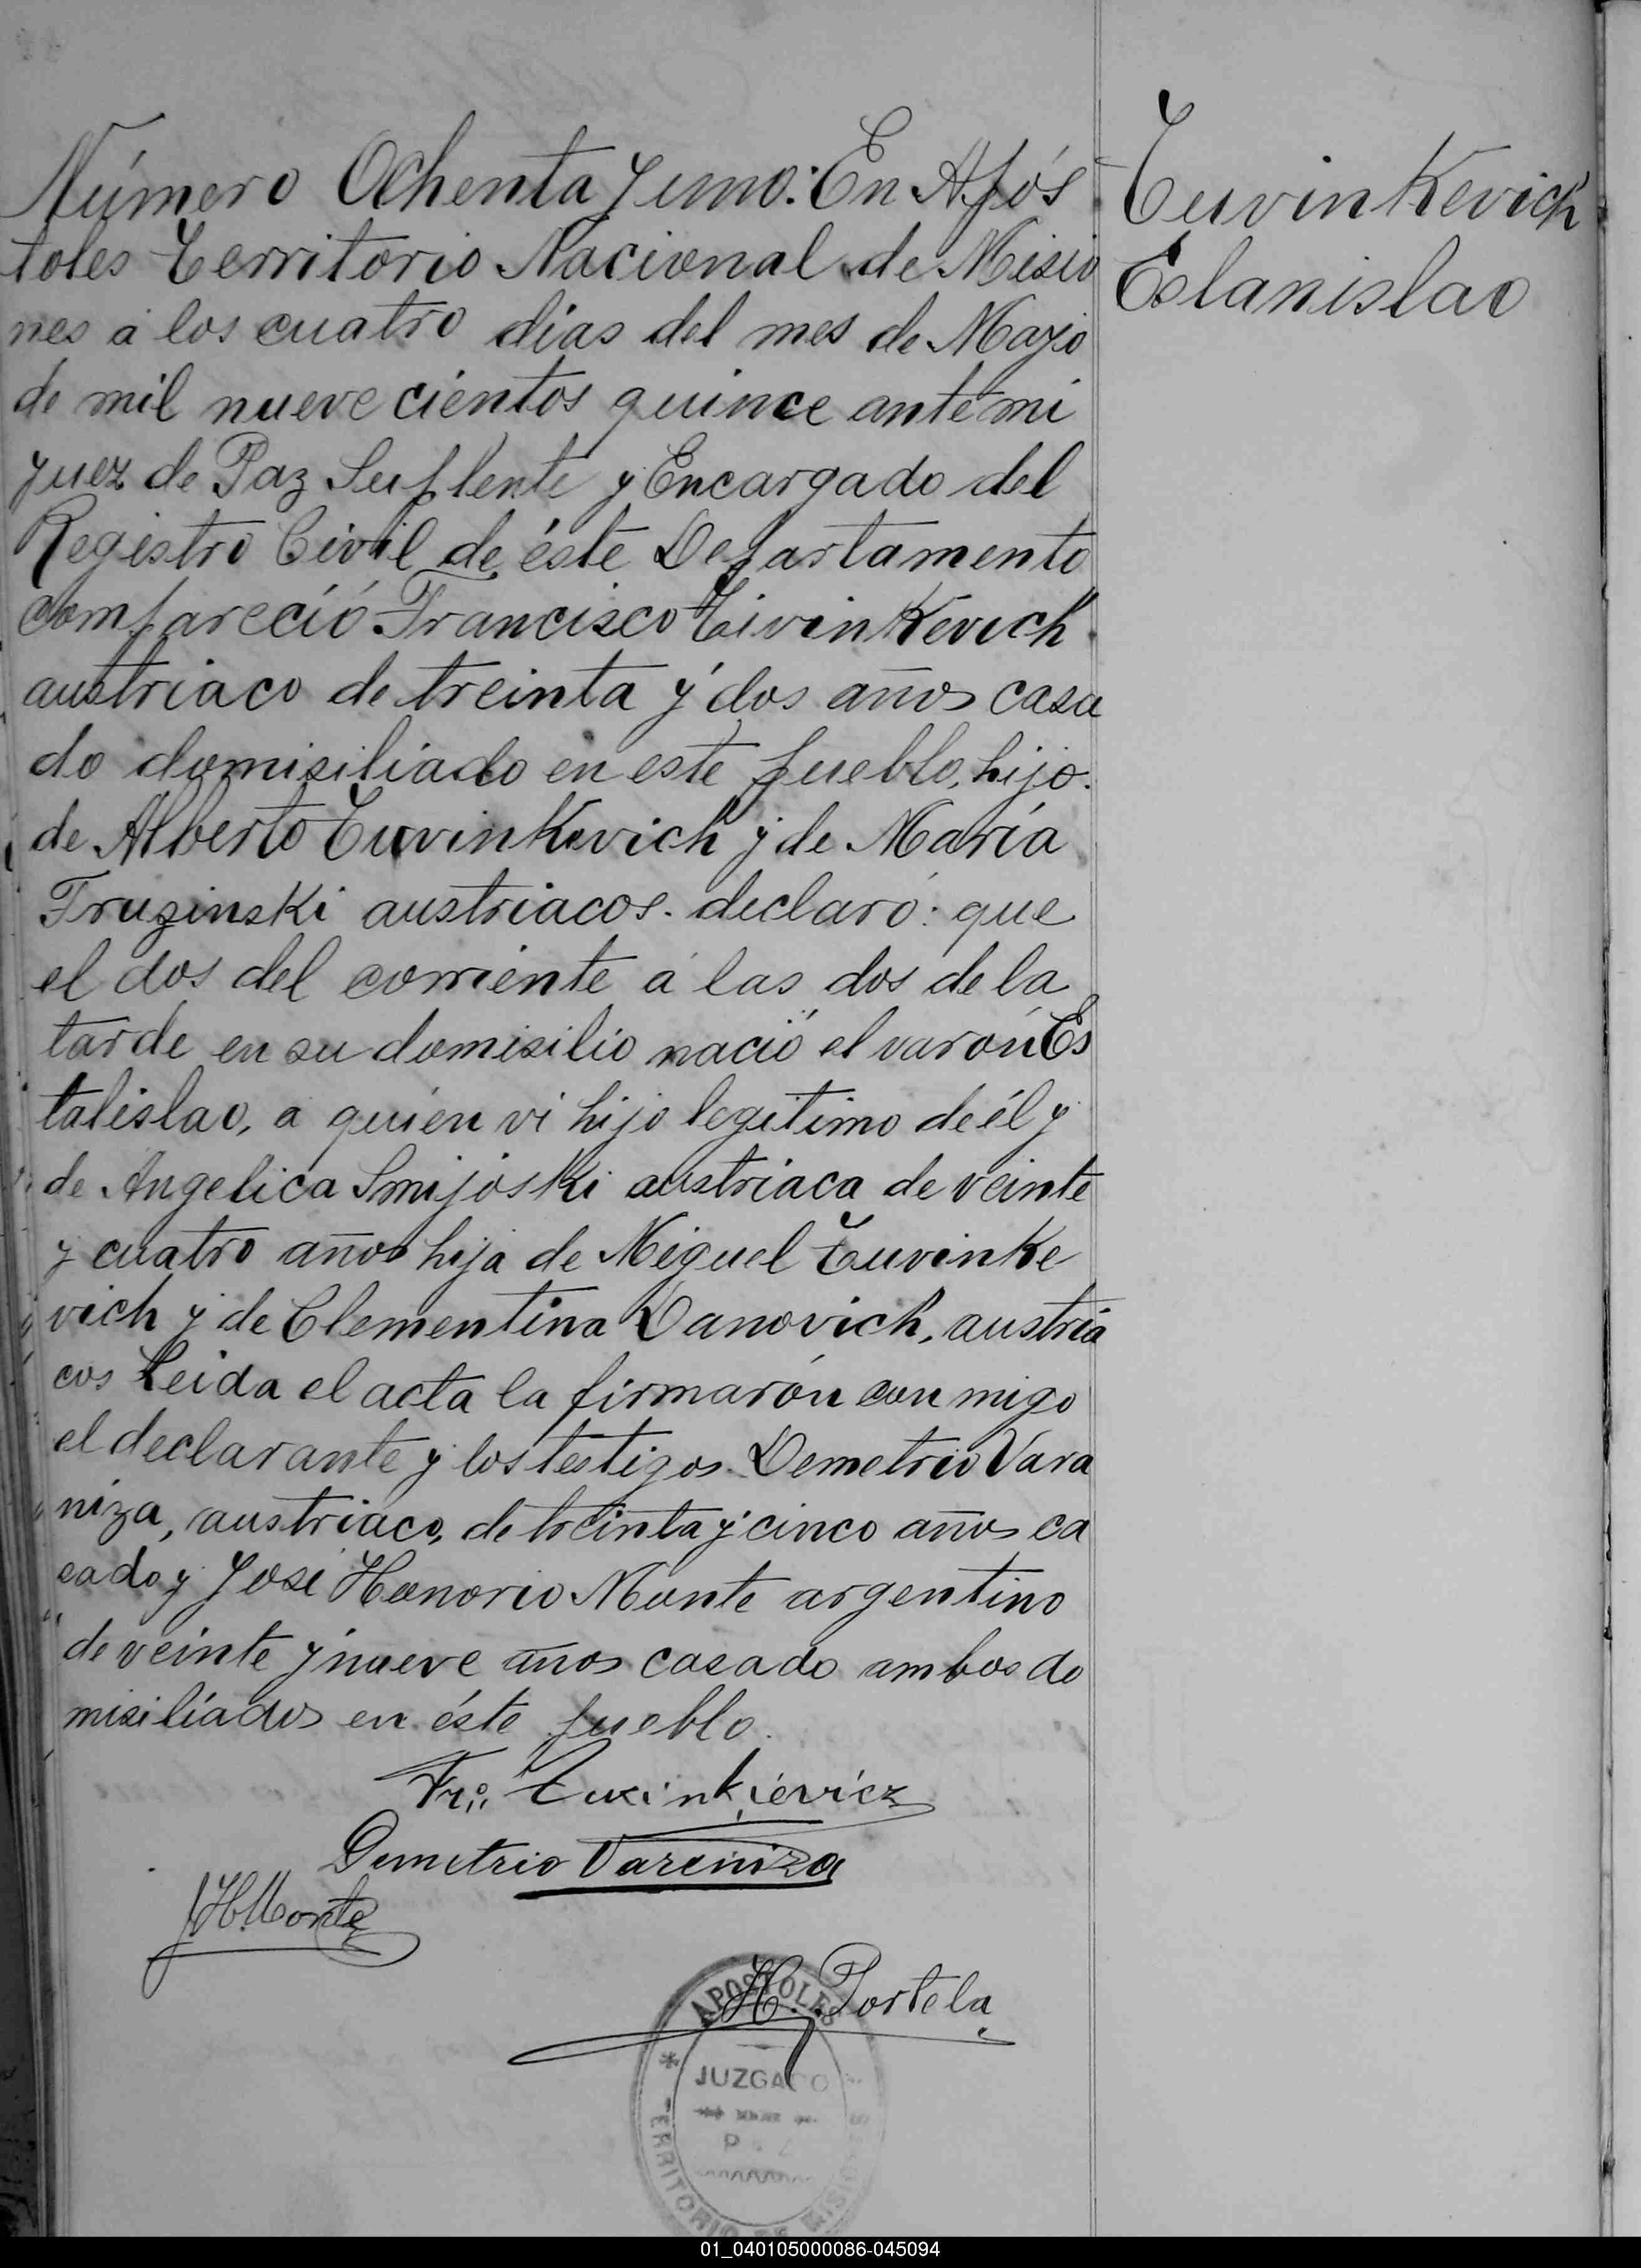 Número Ochenta y uno: En Após
toles Territorio Nacional de Misio
nes á los cuatro días del mes de Mayo
de mil nueve cientos quince ante mi
Juez de Paz Suplente y Encargado del
Registro Civil de éste Departamento
compareció Francisco Tivinkevich
austriaco de treinta y dos años casa
do domisiliado en este pueblo, hijo
de Alberto Tuvinkevich y de María
Truginski austriacos. declaró: que
el dos del corriente á las dos de la
tarde en su domisilio nació el varón Es
talislao, a quien vi hijo legitimo de él y
de Angelica Smijoski austriaca de veinte
y cuatro años hija de Miguel Tuvinke
vich y de Clementina Danovich, austria
cos Leida el acta la firmarón con migo
el declarante y los testigos Demetrio Vara
niza, austriaco, de treinta y cinco años ca
sado y José Honorio Monte argentino
de veinte y nueve años casado ambos do
misiliados en éste pueblo.
Tuvinkevich
Eslanislao
Fr. Tuxinkiewicz
Demetrio Vareniza
JHMonte
H. Portela
APOSTOLES
JUZGADO
TERRITORIO DE MISIONES
01_040105000086-045094